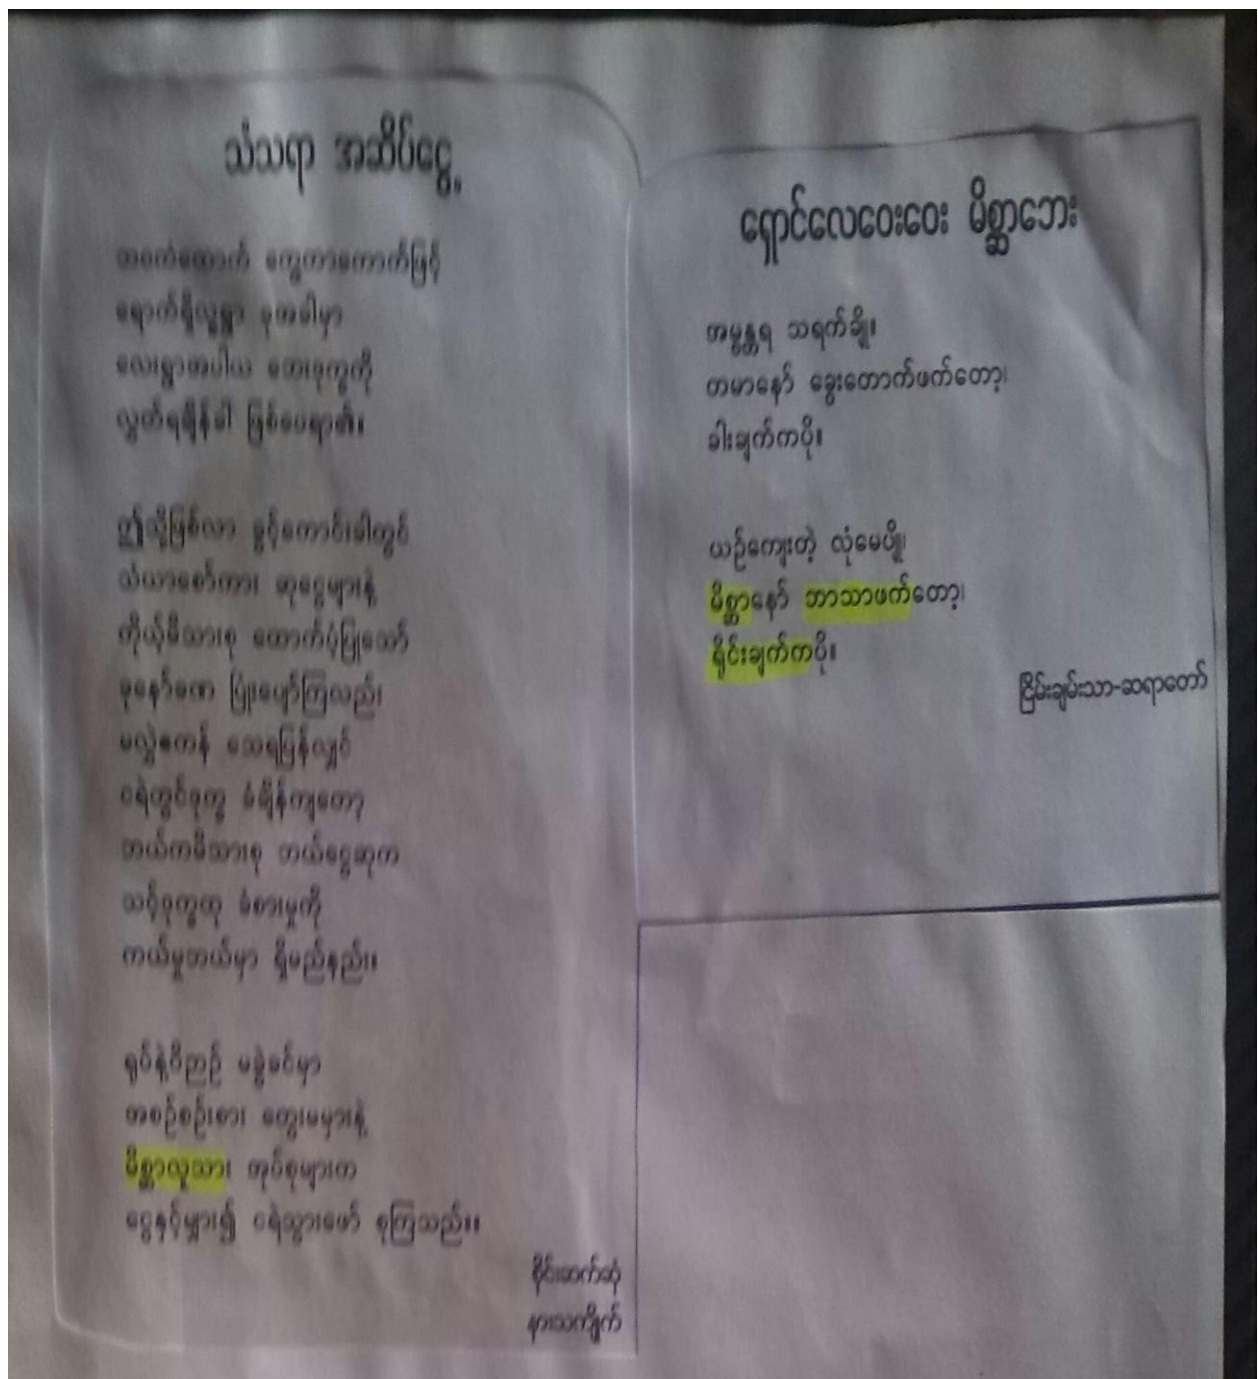 သံသရာ အဆိပ်ငွေ့
အဝကံထောက် ကွေကာကောက်ဖြင့်
ရောက်ရှိလူ့ရွာ ခုအခါမှာ
လေးရွာအပါယ ဘေးဒုက္ခကို
လွတ်ရချိန်ခါ ဖြစ်ပေရာ၏။
ဤသို့ဖြစ်လာ ခွင့်ကောင်းခါတွင်
သံယာစော်ကား ဆုငွေများနဲ့
ကိုယ့်မိသားစု ထောက်ပံ့ပြုသော်
ခုနော်ခဏ ပြုံးပျော်ကြလည်း
မလွဲဧကန် သေရပြန်လျှင်
ငရဲတွင်ဒုက္ခ ခံချိန်ကျတော့
ဘယ်ကမိသားစု ဘယ်ငွေဆုက
သင့်ဒုက္ခထု ခံစားမှုကို
ကယ်မှုဘယ်မှာ ရှိမည်နည်း။
ရုပ်နဲ့ဝိညာဉ် မခွဲခင်မှာ
အစဉ်စဉ်းစား တွေးမမှားနဲ့
မိစ္ဆာလူသား အုပ်စုများက
ငွေနှင့်မျှား၍ ငရဲသွားဖော် စုကြသည်။။
စိုင်းဆက်ဆုံ
နားသကျိုက်
ရှောင်လေဝေးဝေး မိစ္ဆာဘေး
အမွန္တရ သရက်ချို။
တမာနော် ခွေးတောက်ဖက်တော့၊
ခါးချက်ကပို။
ယဉ်ကျေးတဲ့ လုံမေပျို၊
မိစ္ဆာနော် ဘာသာဖက်တော့၊
ရိုင်းချက်ကပို။
ငြိမ်းချမ်းသာ-ဆရာတော်